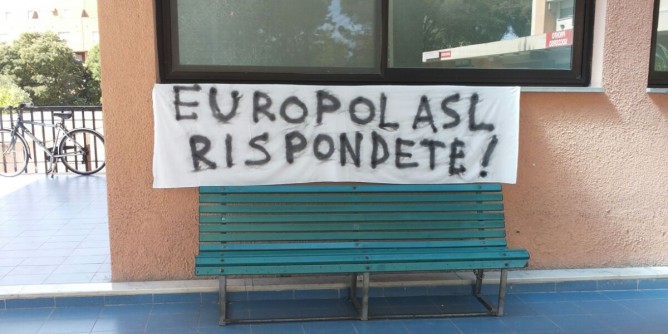 EUROPOLASL
RISPONDETE!